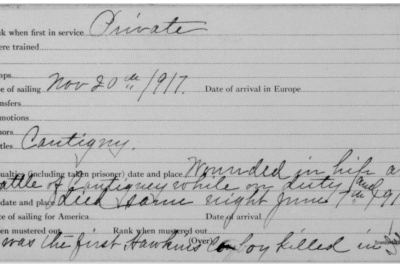 k when first in service Private
ere trained
mps
e of sailing Nov 20th 1917. Date of arrival in Europe
nsfers
motions
nors
tles Cantigny.
ualties (including taken prisoner) date and place Wounded in hip a
attle of Cantigney while on duty and
date and place died same night June 7th 191
e of sailing for America Date of arrival
en mustered out Rank when mustered out
was the first Hawkins Co boy killed in
(Over)